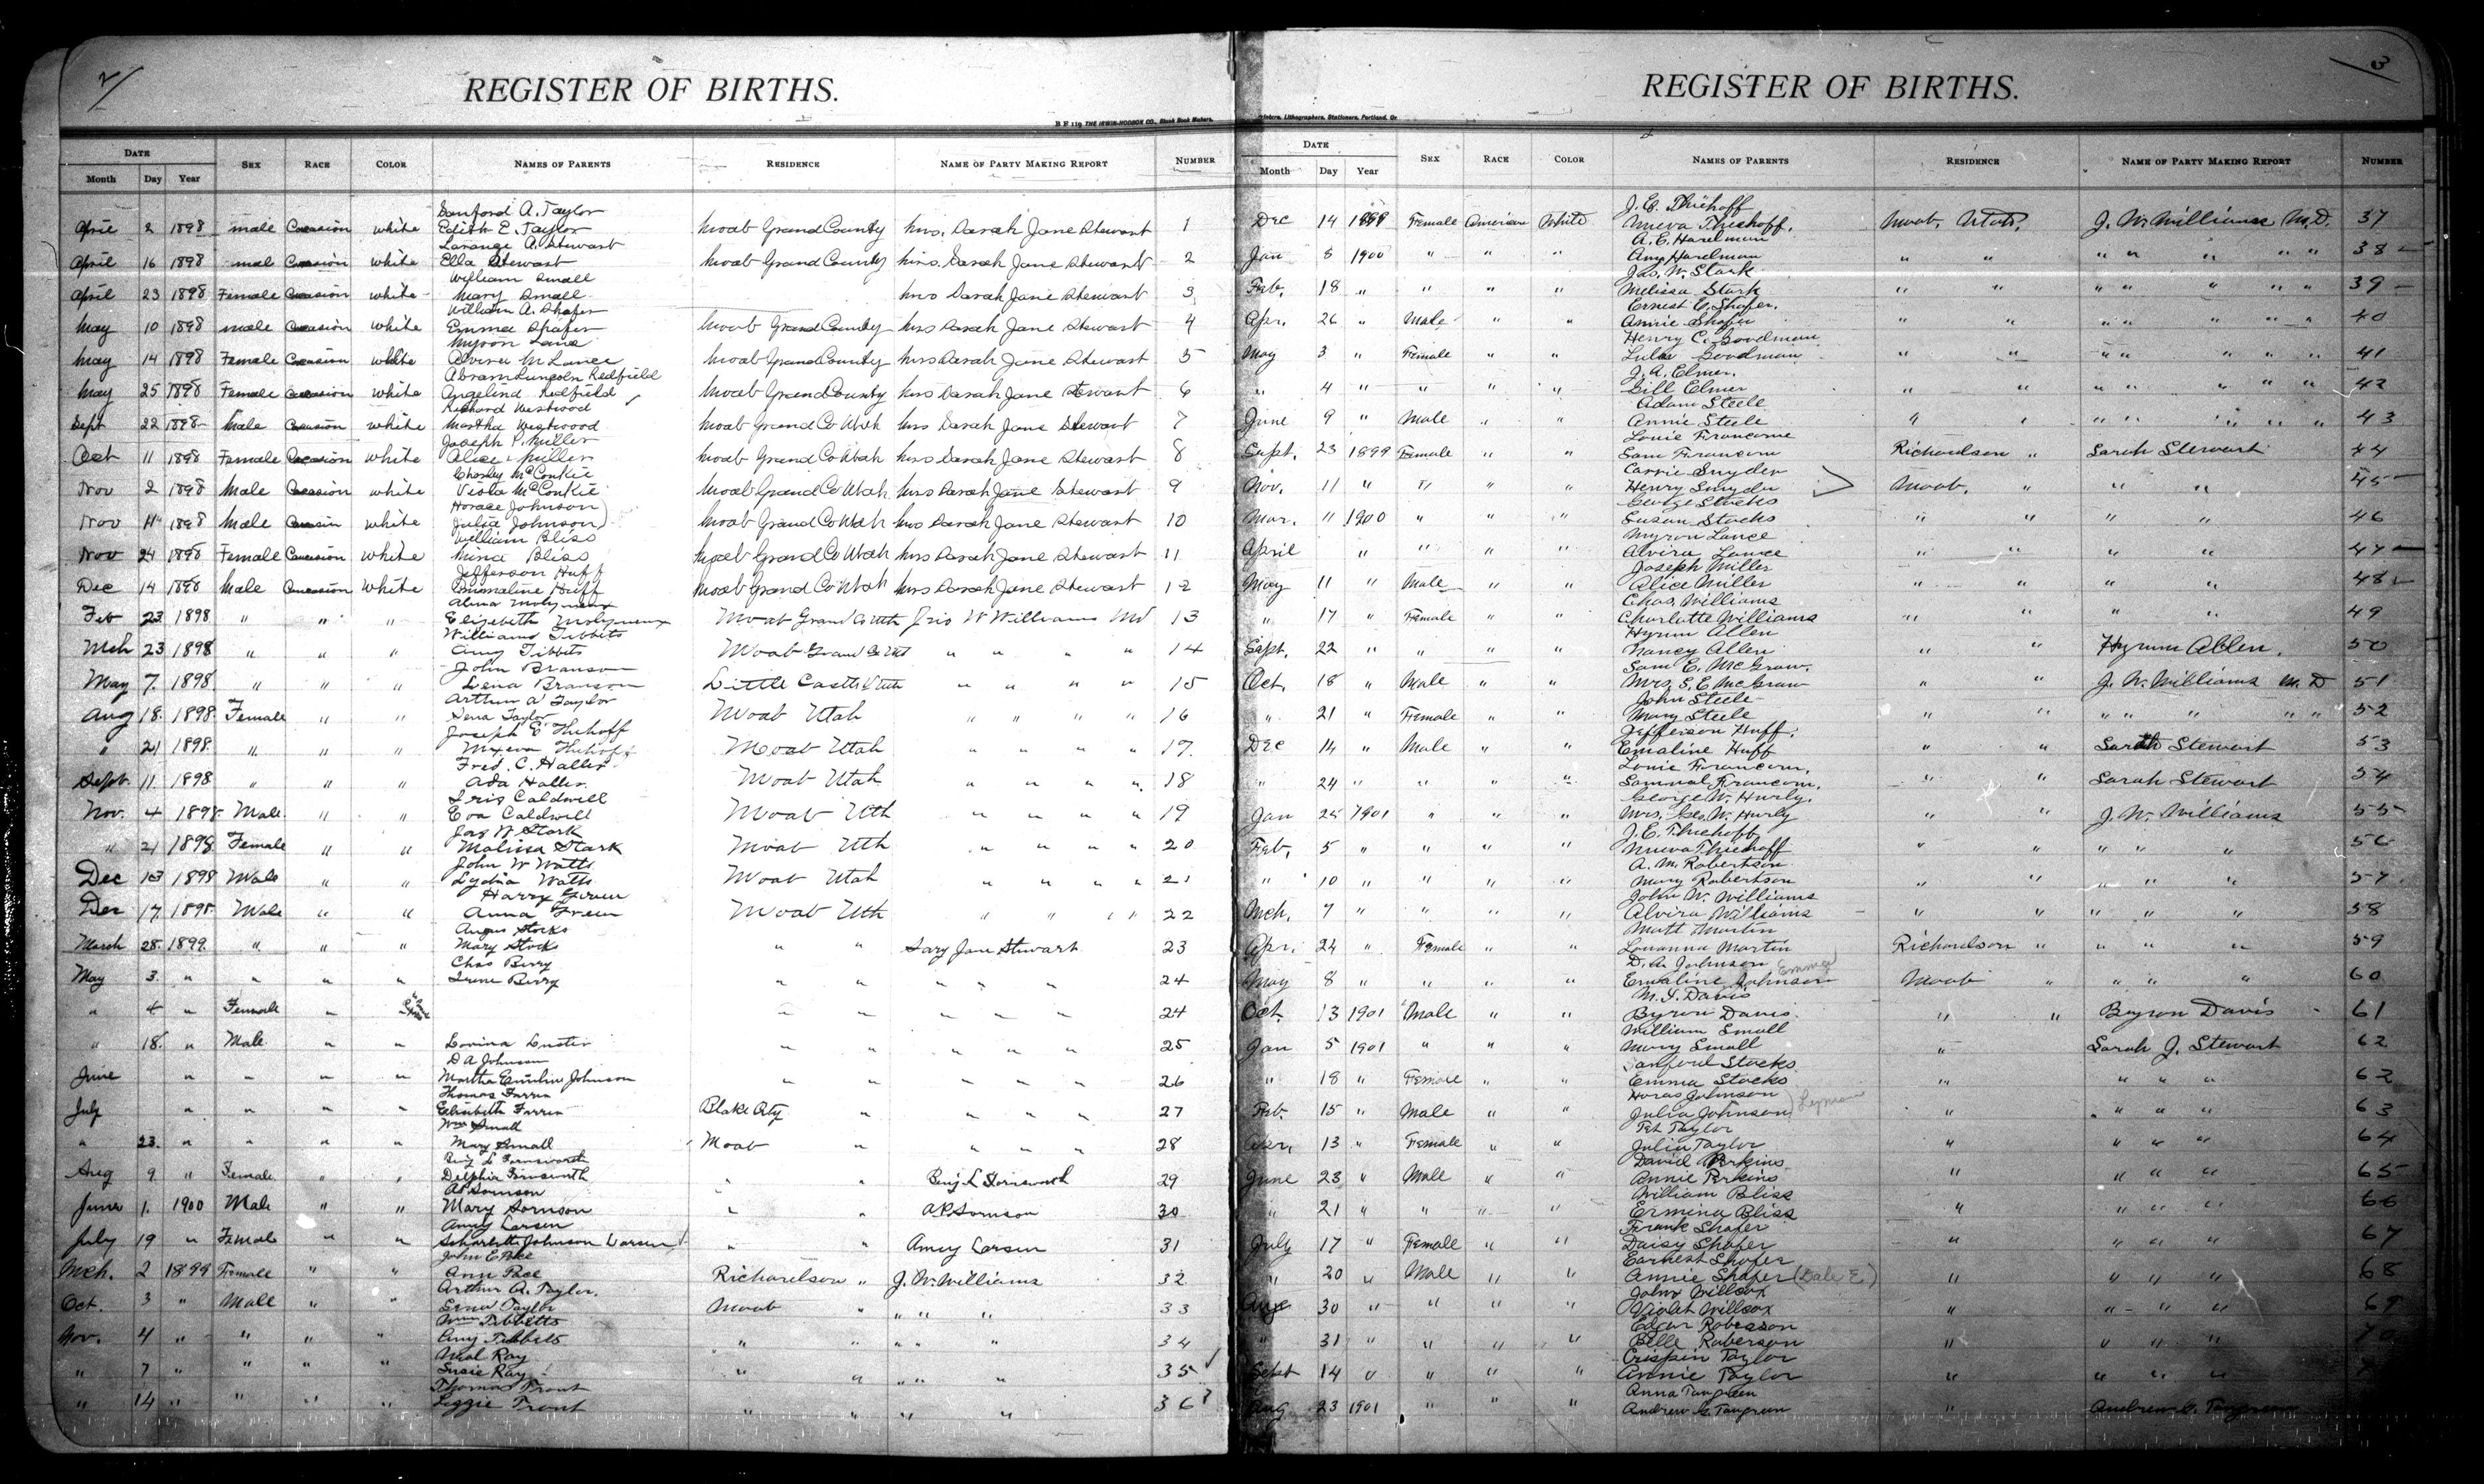 2/
REGISTER OF BIRTHS.
B F 119 THE IRWIN-HODSON CO., Blank Book Makers,
DATE
Month Day Year SEX RACE COLOR NAMES OF PARENTS RESIDENCE NAME OF PARTY MAKING REPORT NUMBER
Sanford A. Taylor
April 2 1898 male Caucasion white Edith E. Taylor Moab Grand County Mrs. Sarah Jane Stewart 1
Larange A. Stewart
April 16 1898 mal Caucasion white Ella Stewart Moab Grand County Mrs. Sarah Jane Stewart 2
William Small
April 23 1898 Female Caucasion white Mary Small Mrs Sarah Jane Stewart 3
William A. Shafer
May 10 1898 male Caucasion white Emma Shafer Moab Grand County Mrs Sarah Jane Stewart 4
Myron Lance
May 14 1898 Female Caucasion white Alvira M Lance Moab Grand County Mrs Sarah Jane Stewart 5
Abram Lincoln Redfield
May 25 1898 Female Caucasion white Angelind Redfield Moab Grand County Mrs Sarah Jane Stewart 6
Richard Westwood
Sept 22 1898 Male Caucasion white Martha Westwood Moab Grand Co Utah Mrs Sarah Jane Stewart 7
Joseph P. Miller
Oct 11 1898 Female Caucasion white Alice Miller Moab Grand Co Utah Mrs Sarah Jane Stewart 8
McConkie
Nov 2 1898 Male Caucasion white Viola McConkie Moab Grand Co Utah Mrs Sarah Jane Stewart 9
Horace Johnson
Nov 11 1898 Male Caucasin white Julia Johnson) Moab Grand Co Utah Mrs Sarah Jane Stewart 10
William Bliss
Nov 24 1898 Female Caucasion white Mina Bliss Moab Grand Co Utah Mrs Sarah Jane Stewart 11
Jefferson Huff
Dec 14 1898 Male Caucasion White Emmaline Huff Moab Grand Co Utah Mrs Sarah Jane Stewart 12
Alma Molyneux
Feb 23 1898 " " " Elizebeth Molyneux Moab Grand Co Uth Jno W Williams Md 13
William Tibbits
Mch 23 1898 " " " Amy Tibbets Moab Grand Co Ut " " " " 14
John Branson
May 7. 1898. " " " Lena Branson Little Castle Uth " " " " 15
Arthur A Taylor
Aug 18. 1898. Female " " Sena Taylor Moab Utah " " " " 16
Joseph E Thehoff
" 21 1898. " " " Moab Utah " " " " 17.
Fred. C. Haller
Sept. 11. 1898 " " " Ada Haller Moab Utah " " " " 18
Iris Caldwell
Nov. 4 1898 Male " " Eva Caldwell Moab Uth " " " " 19
Jas W Stark
" 21 1898 Female " " Malissa Stark Moab Uth " " " " 20
John W Watts
Dec 13 1898 Male " " Lydia Watts Moab Utah " " " " 21
Harry Green
Dec 17. 1898. Male " " Anna Green Moab Uth " " " " 22
Angus Stocks
March 28. 1899. " " " Mary Stock " " Sary Jane Stewart 23
Chas Berry
May 3. " " " " Irene Berry " " " " " 24
" 4 " Female " " " " " " 24
" 18. " Male " " Lovina Luster " " " " " 25
D A Johnson
June " " " " Martha Emiline Johnson " " " " " 26
Thomas Farrer
July " " " " Elizabeth Farrer Blake City " " " " 27
Wm Small
" 23. " " " " Mary Small Moab " " " " 28
Benj L Farnsworth
Aug 9. " Female " " Delphia Farnsworth " " Benj L Farnsworth 29
AP Sornson
June 1. 1900 Male " " Mary Sornson " " A.P. Sornson 30
Amy Larsen
July 19 " Female " " Scharlotte Johnson Larsen " " Amey Larsen 31
John E Pace
Mch. 2 1899 Female " " Ann Pace Richardson " J. W. Williams 32
Arthur A. Taylor.
Oct. 3 " Male " " Sena Taylor Moab " " " " 33
Wm Tibbetts
Nov. 4 " " " " Amy Tibbets " " " " " 34
Neal Ray
" 7 " " " " Susie Ray " " " " " 35
Thomas Trout
" 14 " " " " Lizzie Trout " " " " 36
3
REGISTER OF BIRTHS.
Printers, Lithographers, Stationers, Portland, Or
DATE
Month Day Year SEX RACE COLOR NAMES OF PARENTS RESIDENCE NAME OF PARTY MAKING REPORT NUMBER
J. E. Thiehoff
Dec 14 1899 Female American White Mueva Thiehoff. Moab, Utah. J. W. Williams M.D. 37
A. E. Harelman
Jan 5 1900 " " " Amy Harelman " " " " " " " 38
Jas. W. Stark
Feb. 18 " " " " Melissa Stark " " " " " " " 39
Ernest E. Shafer.
Apr. 26 " Male " " Annie Shafer " " " " " " " 40
Henry C. Goodman
May 3 " Female " " Lula Goodman " " " " " " " 41
J. A. Elmer.
" 4 " " " " Gill Elmer " " " " " " " 42
Adam Steele
June 9 " Male " " Annie Steele " " " " " " " 43
Louie Francom
Sept. 23 1899 Female " " Sam Francom Richardson " Sarah Stewart 44
Carrie Snyder
Nov. 11 " " " " Henry Snyder Moab. " " " 45
George Stocks
Mar. 11 1900 " " " Susan Stocks " " " " 46
Myron Lance
April " " " " Alvira Lance " " " " 47
Joseph Miller
May 11 " Male " " Alice Miller " " " " 48
Chas. Williams
" 17 " Female " " Charlotte Williams " " " " 49
Hyrum Allen
Sept. 22 " " " " Nancy Allen " " Hyrum Allen. 50
Sam E. McGraw.
Oct. 18 " Male " " Mrs. S. E. McGraw " " J. W. Williams M. D 51
John Steele
" 21 " Female " " Mary Steele " " " " " " " 52
Jefferson Huff.
Dec 14 " Male " " Emaline Huff " " Sarah Stewart 53
Louie Francom.
" 24 " " " " Samual Francom. " " Sarah Stewart 54
George W. Hurly.
Jan 25 1901 " " " Mrs. Geo. W. Hurly " " J. W. Williams 55
J. E. Thiehoff
Feb. 5 " " " " Mueva Thiehoff " " " " " 56
A. M. Robertson
" 10 " " " " Mary Robertson " " " " " 57
John W. Williams
Mch. 7 " " " " Alvira Williams " " " " " 58
Matt Martin
Apr. 24 " Female " " Louanna Martin Richardson " " " " 59
D. A. Johnson
May 8 " " " " Emaline Johnson Emma Moab " " " " 60
M. Y. Davis
Oct. 13 1901 Male " " Byron Davis. " " Byron Davis 61
William Small
Jan 5 1901 " " " Mary Small " Sarah J. Stewart 62
Sanford Stocks
" 18 " Female " " Emma Stocks " " " " 62
Horas Johnson
Feb. 15 " Male " " Julia Johnson) Lyman " " " " 63
Pet Taylor
Apr. 13 " Female " " Julia Taylor " " " " 64
David Perkins
June 23 " Male " " Annie Perkins " " " " 65
William Bliss
" 21 " " " " Ermina Bliss " " " " 66
Frank Shafer
July 17 " Female " " Daisy Shafer " " " " 67
Earnest Shafer
" 20 " Male " " Annie Shafer (Dale E.) " " " " 68
John Willcox
Aug 30 " " " " Violet Willcox " " " " 69
Edgar Roberson
" 31 " " " " Belle Roberson " " " " 70
Crispin Taylor
Sept 14 " " " " Annie Taylor " " " "
Anna Tangreen
Aug 23 1901 " " " Andrew G. Tangreen " Andrew G. Tangreen